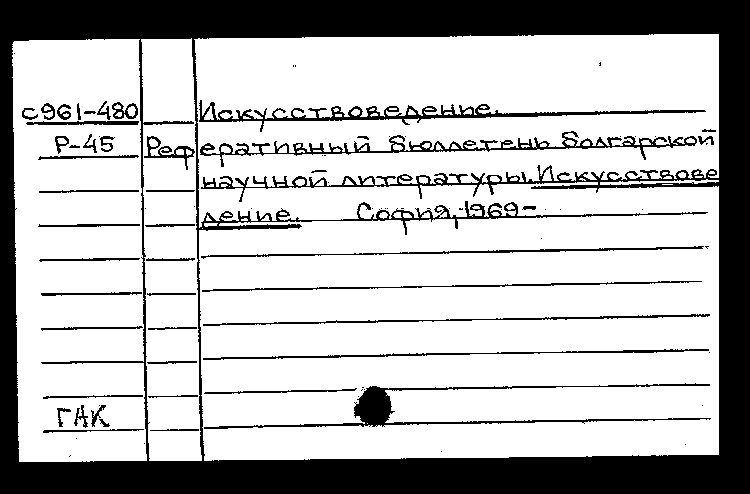 с961-480 Искусствоведение.
Р-45 Реферативный бюллетень болгарской
научной литературы. Искусствове
дение. София, 1969-
ГАК